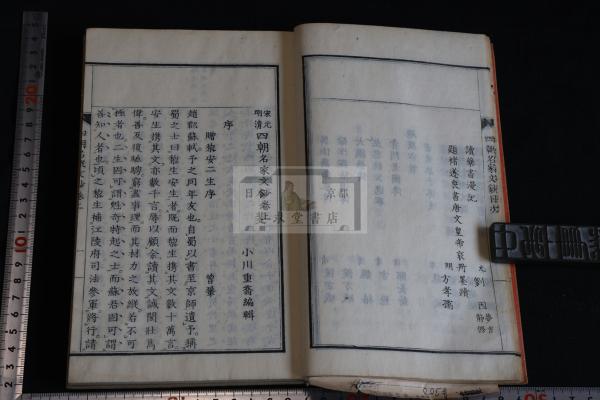 讀藥書漫記
元 劉因 夢吉 靜修
題褚遂良書唐文皇帝哀冊墨蹟
明 方孝孺
四朝名家文鈔目次
宋元明清四朝名家文鈔卷
小川重斎編輯
序
贈黎安二生序
曾鞏
趙郡蘇軾予之同年友也自蜀以書至京師遺予稱
蜀之士曰黎生安生者既而黎生携其文數十萬言
安生携其文亦數千言辱以顧余讀其文誠閎壯雋
偉善反復馳騁窮盡事理而其材力之放縱若不可
極者也二生固可謂魁奇特起之士而蘇君固可謂
善知人者也頃之黎生補江陵府司法參軍將行請
日 京都
書店